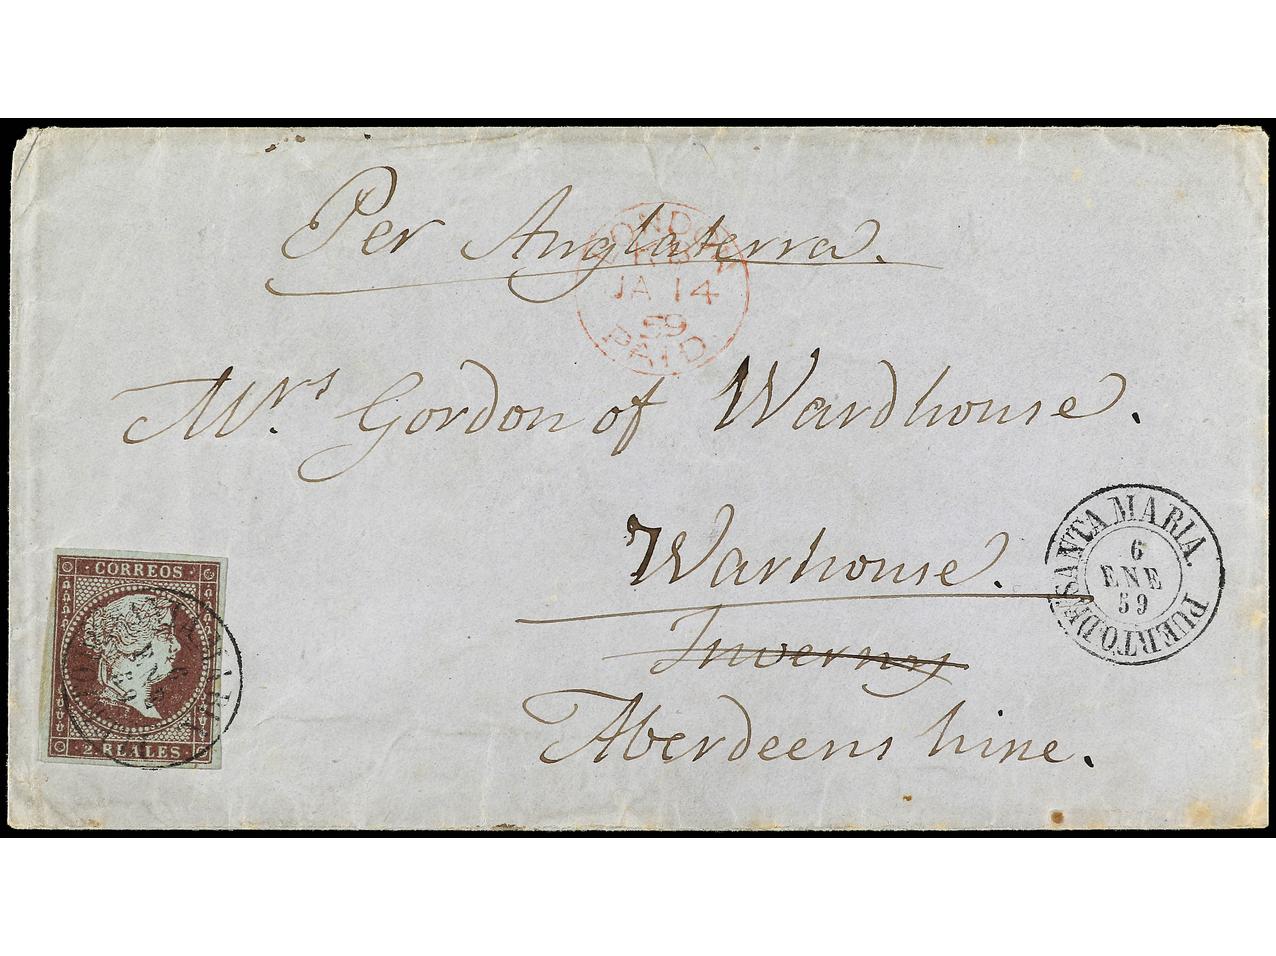 Per Anglaterra.
LONDON
JA 14
59
PAID
Mrs. Gordon of Wardhouse.
Warhouse.
Inverny
Aberdeenshire.
PUERTO DE SANTA MARIA.
6
ENE
59
CORREOS
2 RLALES